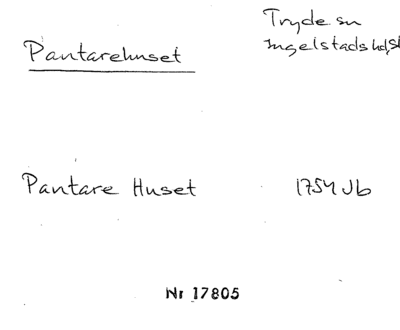 Pantarehuset
Tryde sn
Ingelstads hd, Sk
Pantare Huset
1754 Jb
Nr 17805